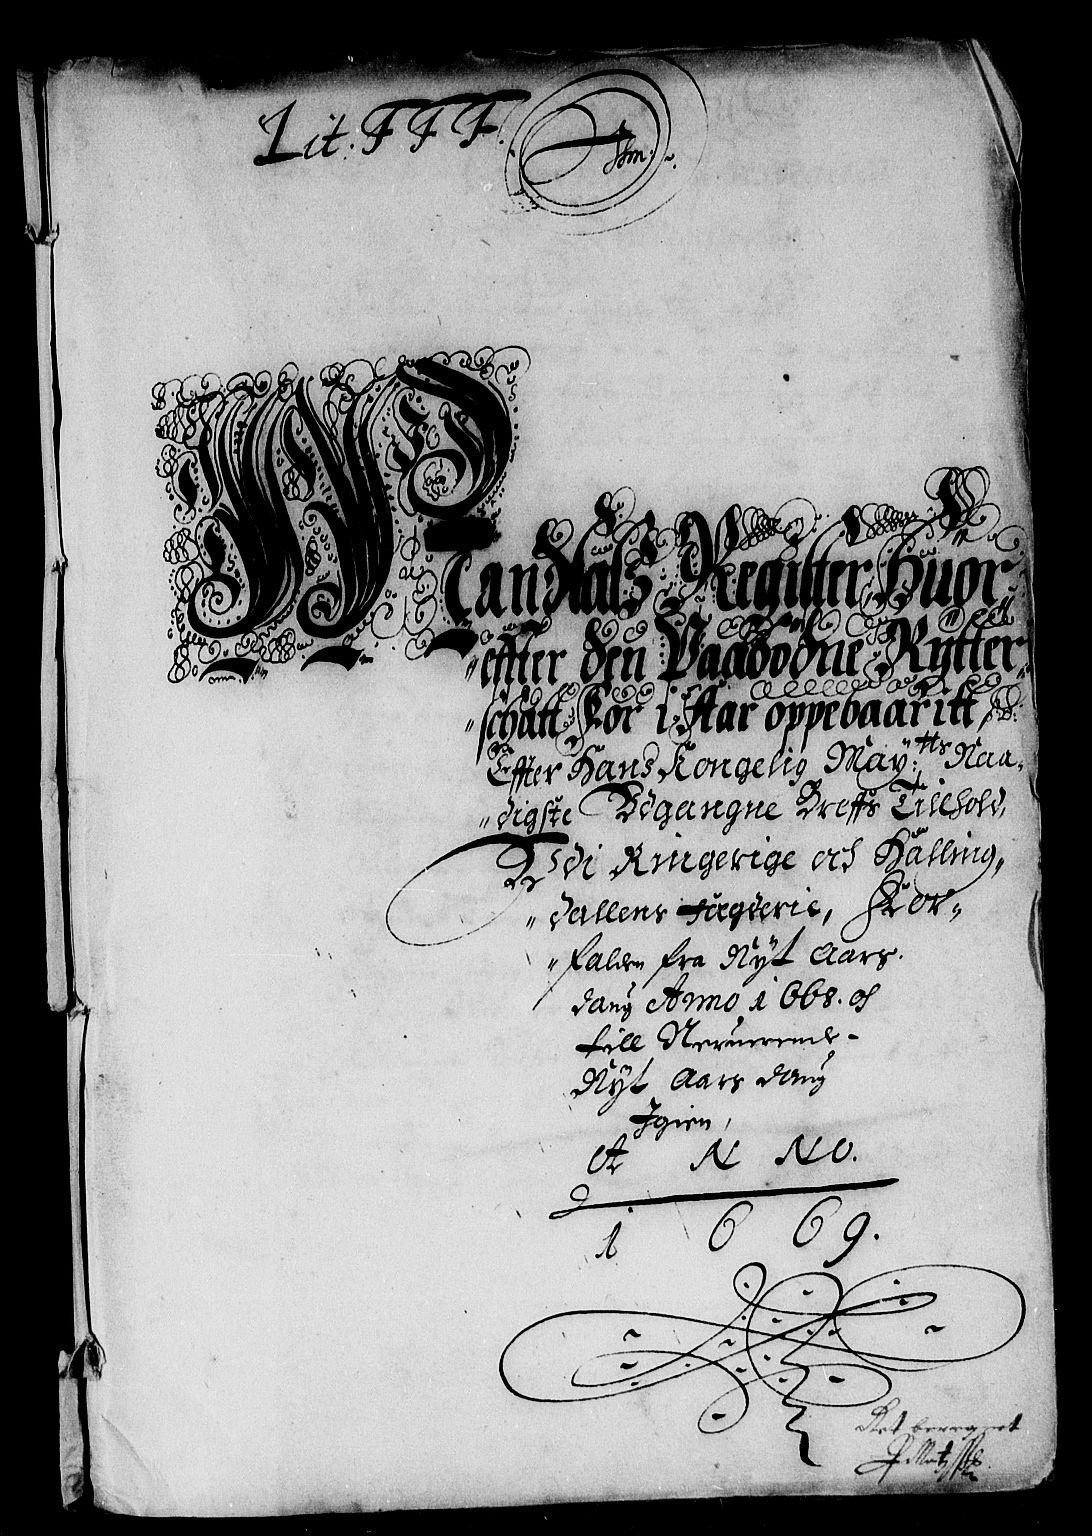 Lit. FFF.
Mandtals Register Huor
effter den Paabødne Rytter
schatt For it Aar oppebaaritt
Effter Hans Kongelig May:tts Naa
digste Udgangne Breffs Tillhold,
Udi Ringerige och Halling,
dallens fugderie, For
falden fra Nyt Aars
dang Anno 1668. och
till Neruerende
Nyt Aars dang
Igien,
A N NO.
1 6 69.